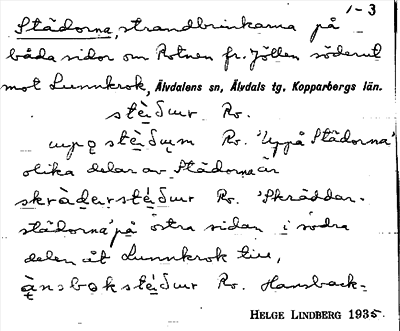 1-3
Städorna, strandbrinkarna på
båda sidor om Rotnen fr. Jöllen söderut
mot Lunnkrok, Älvdalens sn, Älvdals tg. Kopparbergs län.
stèdur Ro.
upo̜ stèdum Ro. 'uppå Städorna'
olika delar av Städorna är
skràderstédur Ro. 'Skräddar-
städorna' på östra sidan i södra
delen åt Lunnkrok till,
ànsbakstédur Ro. Hansback-
HELGE LINDBERG 1935.